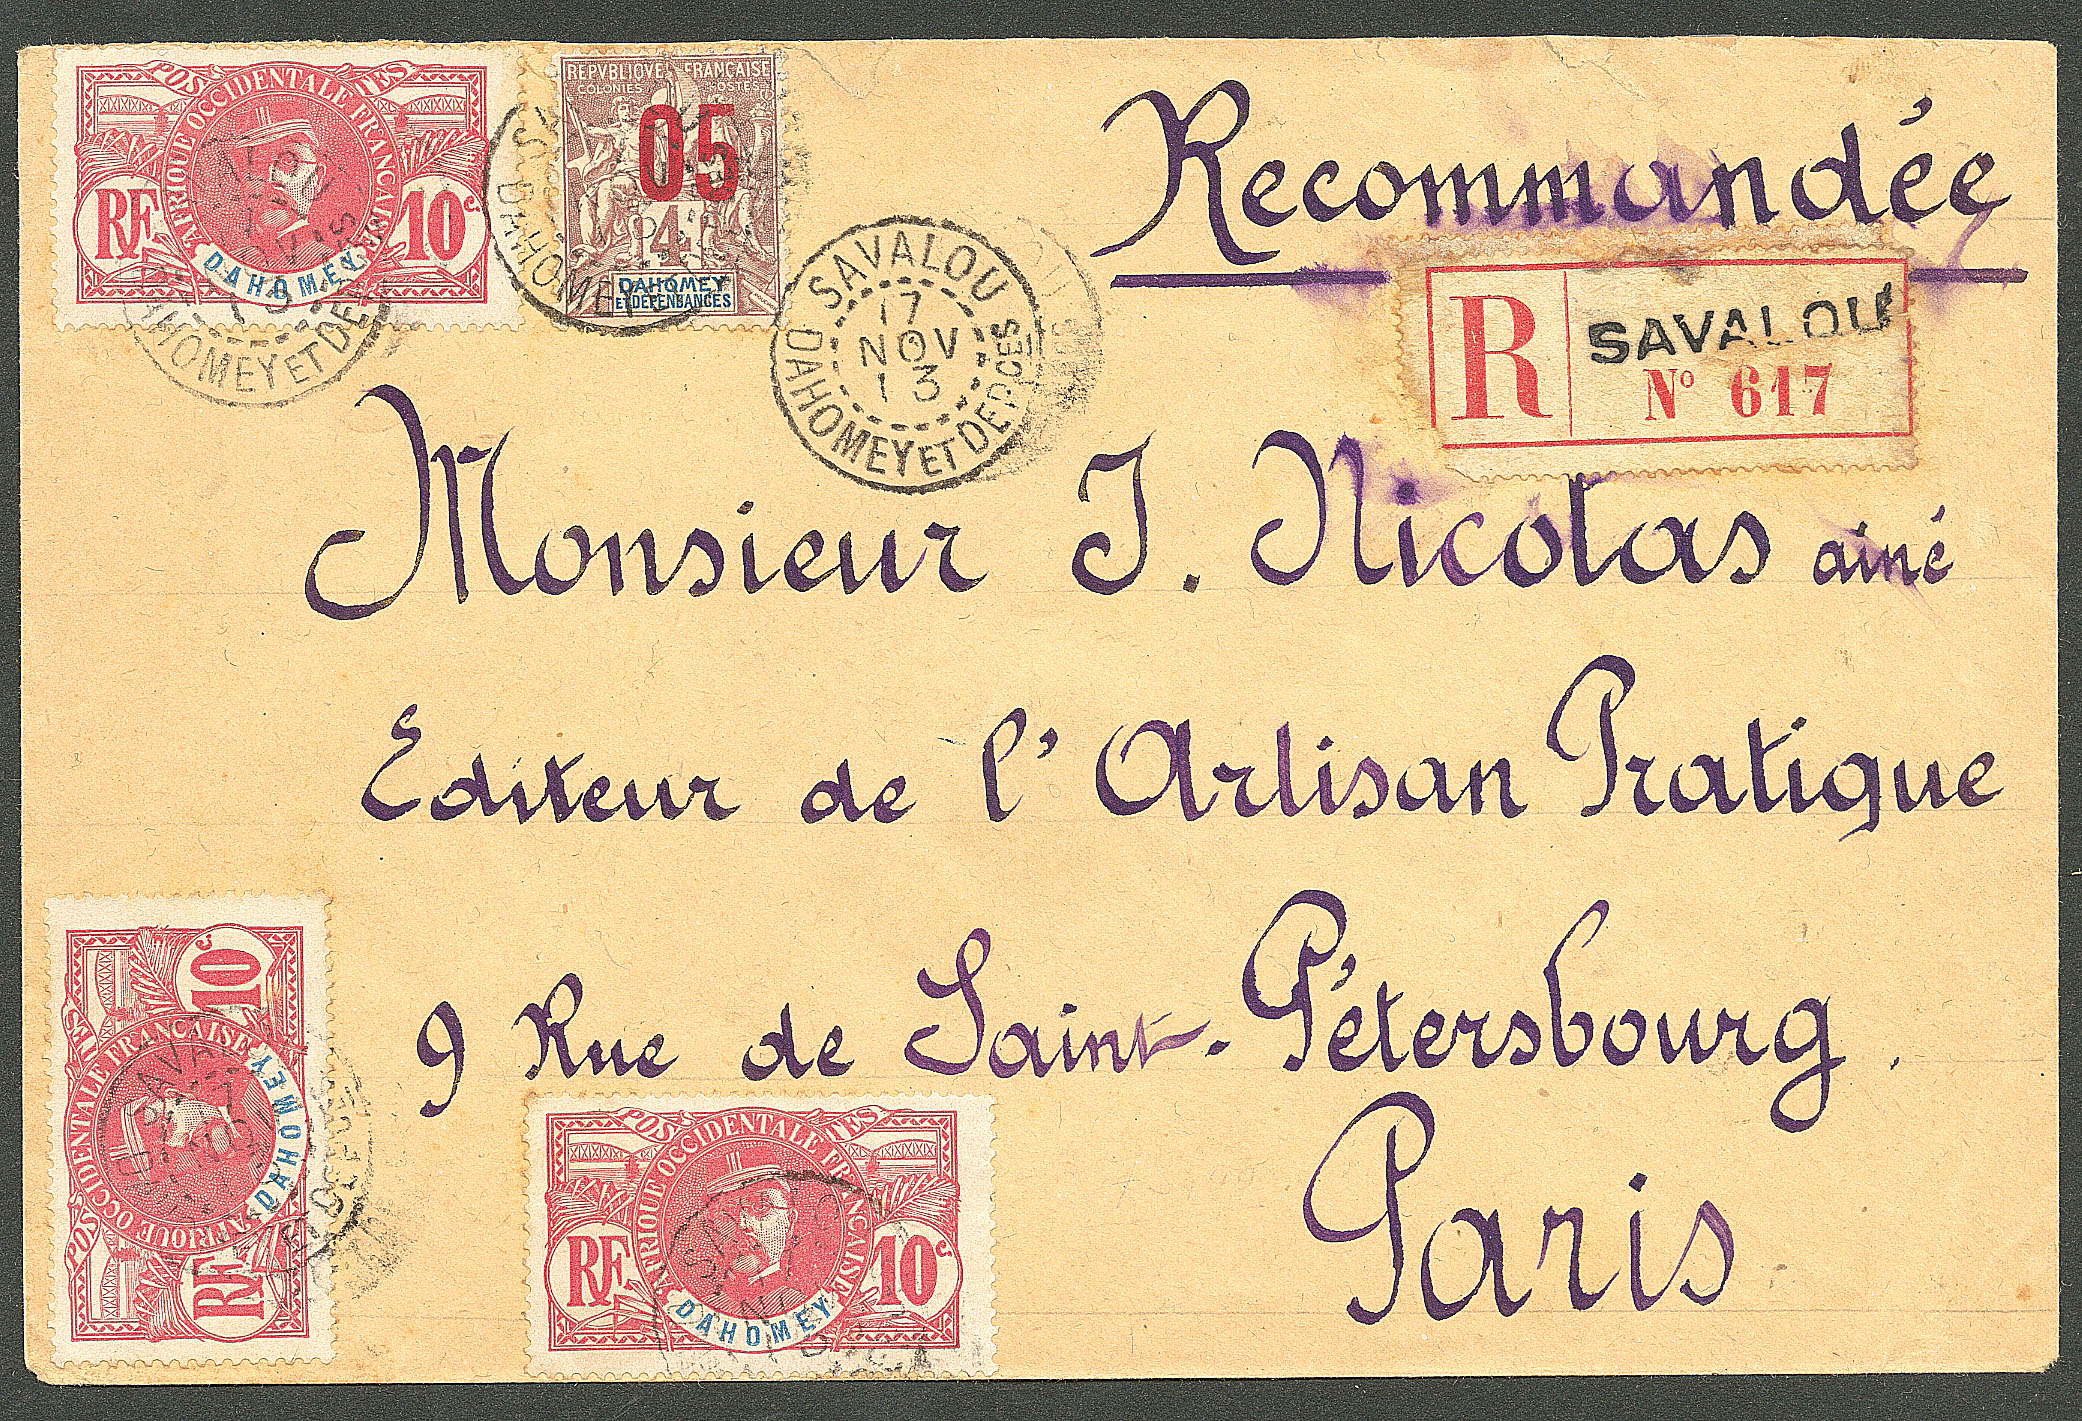 POSTES
AFRIQUE OCCIDENTALE FRANÇAISE
RF
10c
DAHOMEY
REPVBLIQVE FRANÇAISE
COLONIES POSTES
05
4
DAHOMEY
ET DÉPENDANCES
SAVALOU
17
NOV
13
DAHOMEY ET DEPCES
Recommandée
R
SAVALOU
No 617
Monsieur J. Nicolas ainé
Editeur de l'Artisan Pratique
9 Rue de Saint-Pétersbourg.
Paris
POSTES
AFRIQUE OCCIDENTALE FRANÇAISE
RF
10c
DAHOMEY
POSTES
AFRIQUE OCCIDENTALE FRANÇAISE
RF
10c
DAHOMEY